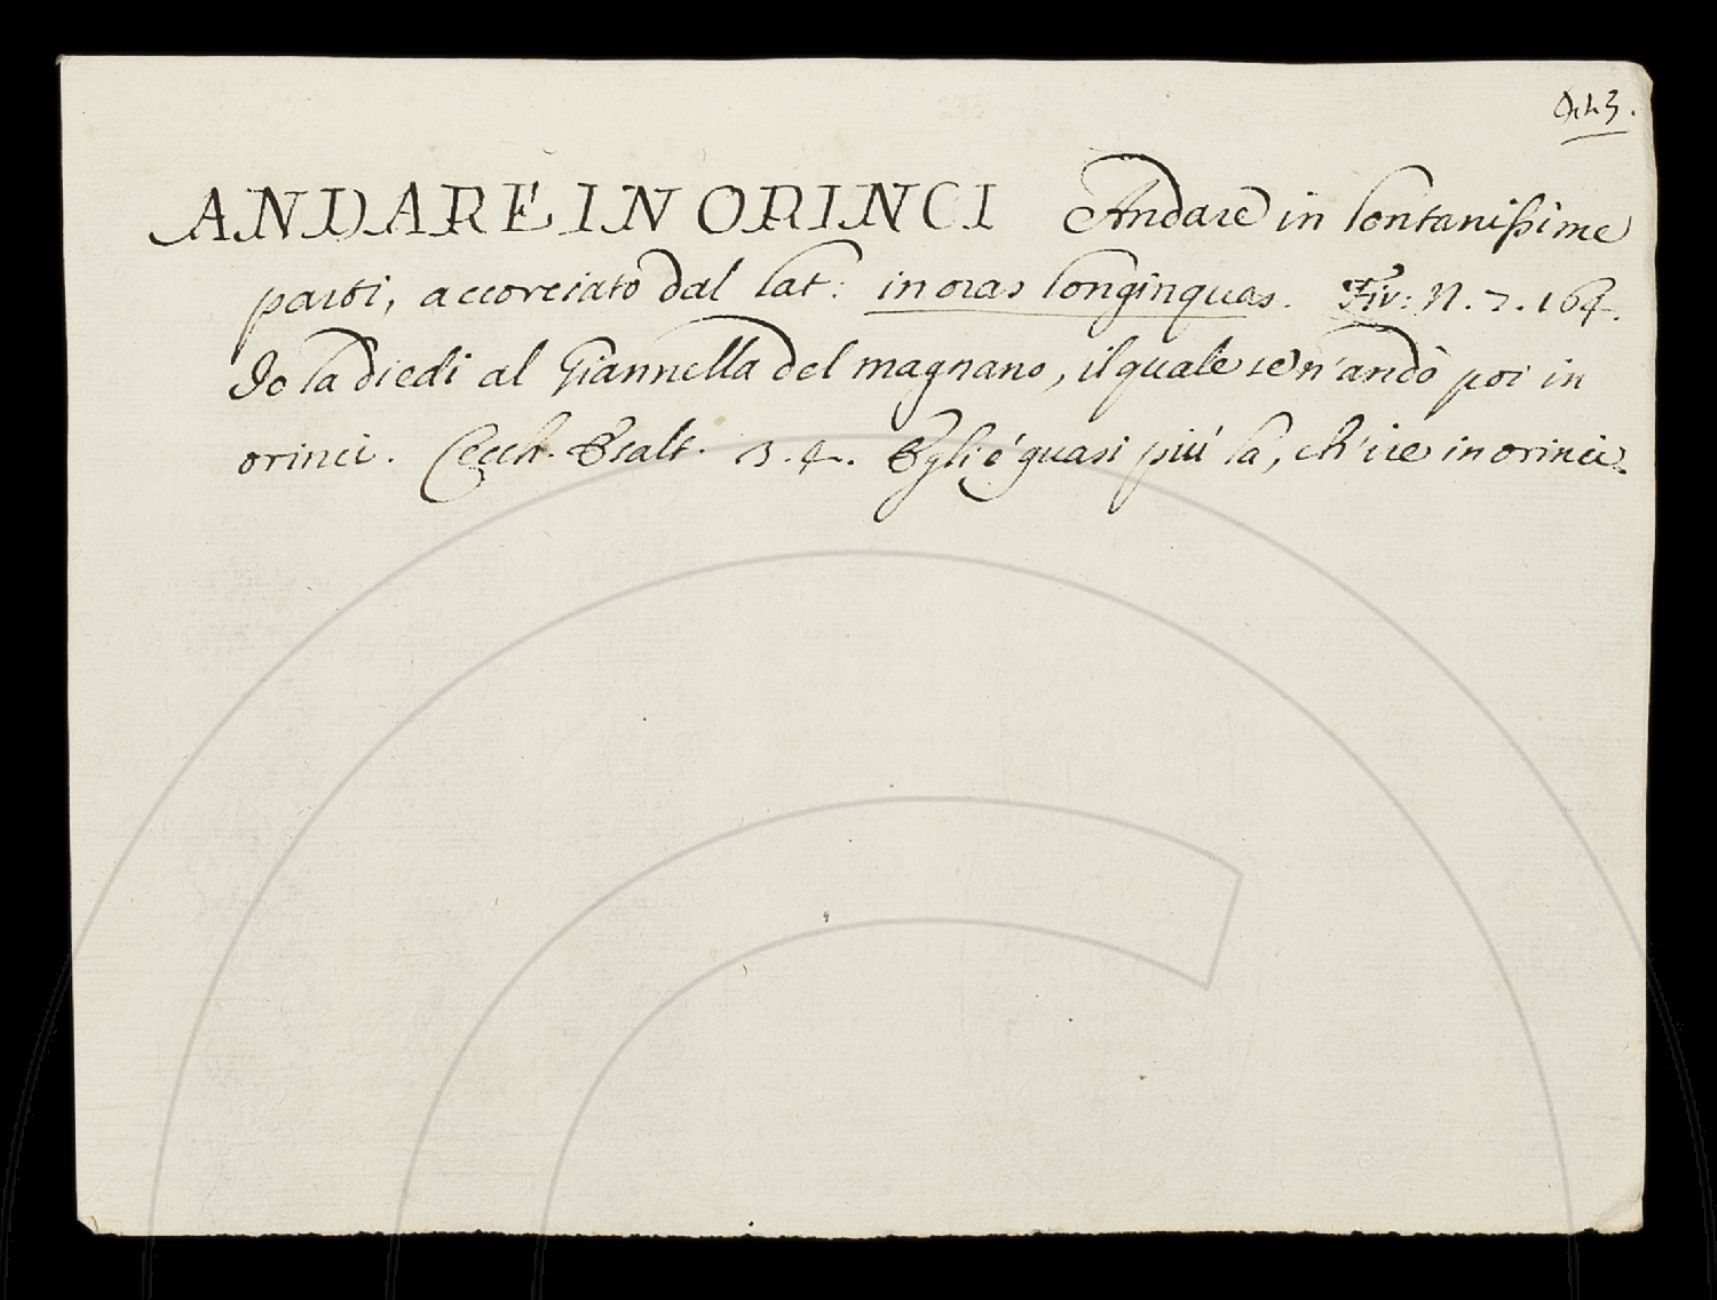 ANDARE IN ORINCI Andare in lontanissime
parti, accorciato dal lat: in oras longinquas. Fir: N. 7. 164.
Io la diedi al Giannella del magnano, il quale se n'andò poi in
orinci. Cecch. Esalt. 3. 4. Egli è quasi più la, ch'ire in orinci.